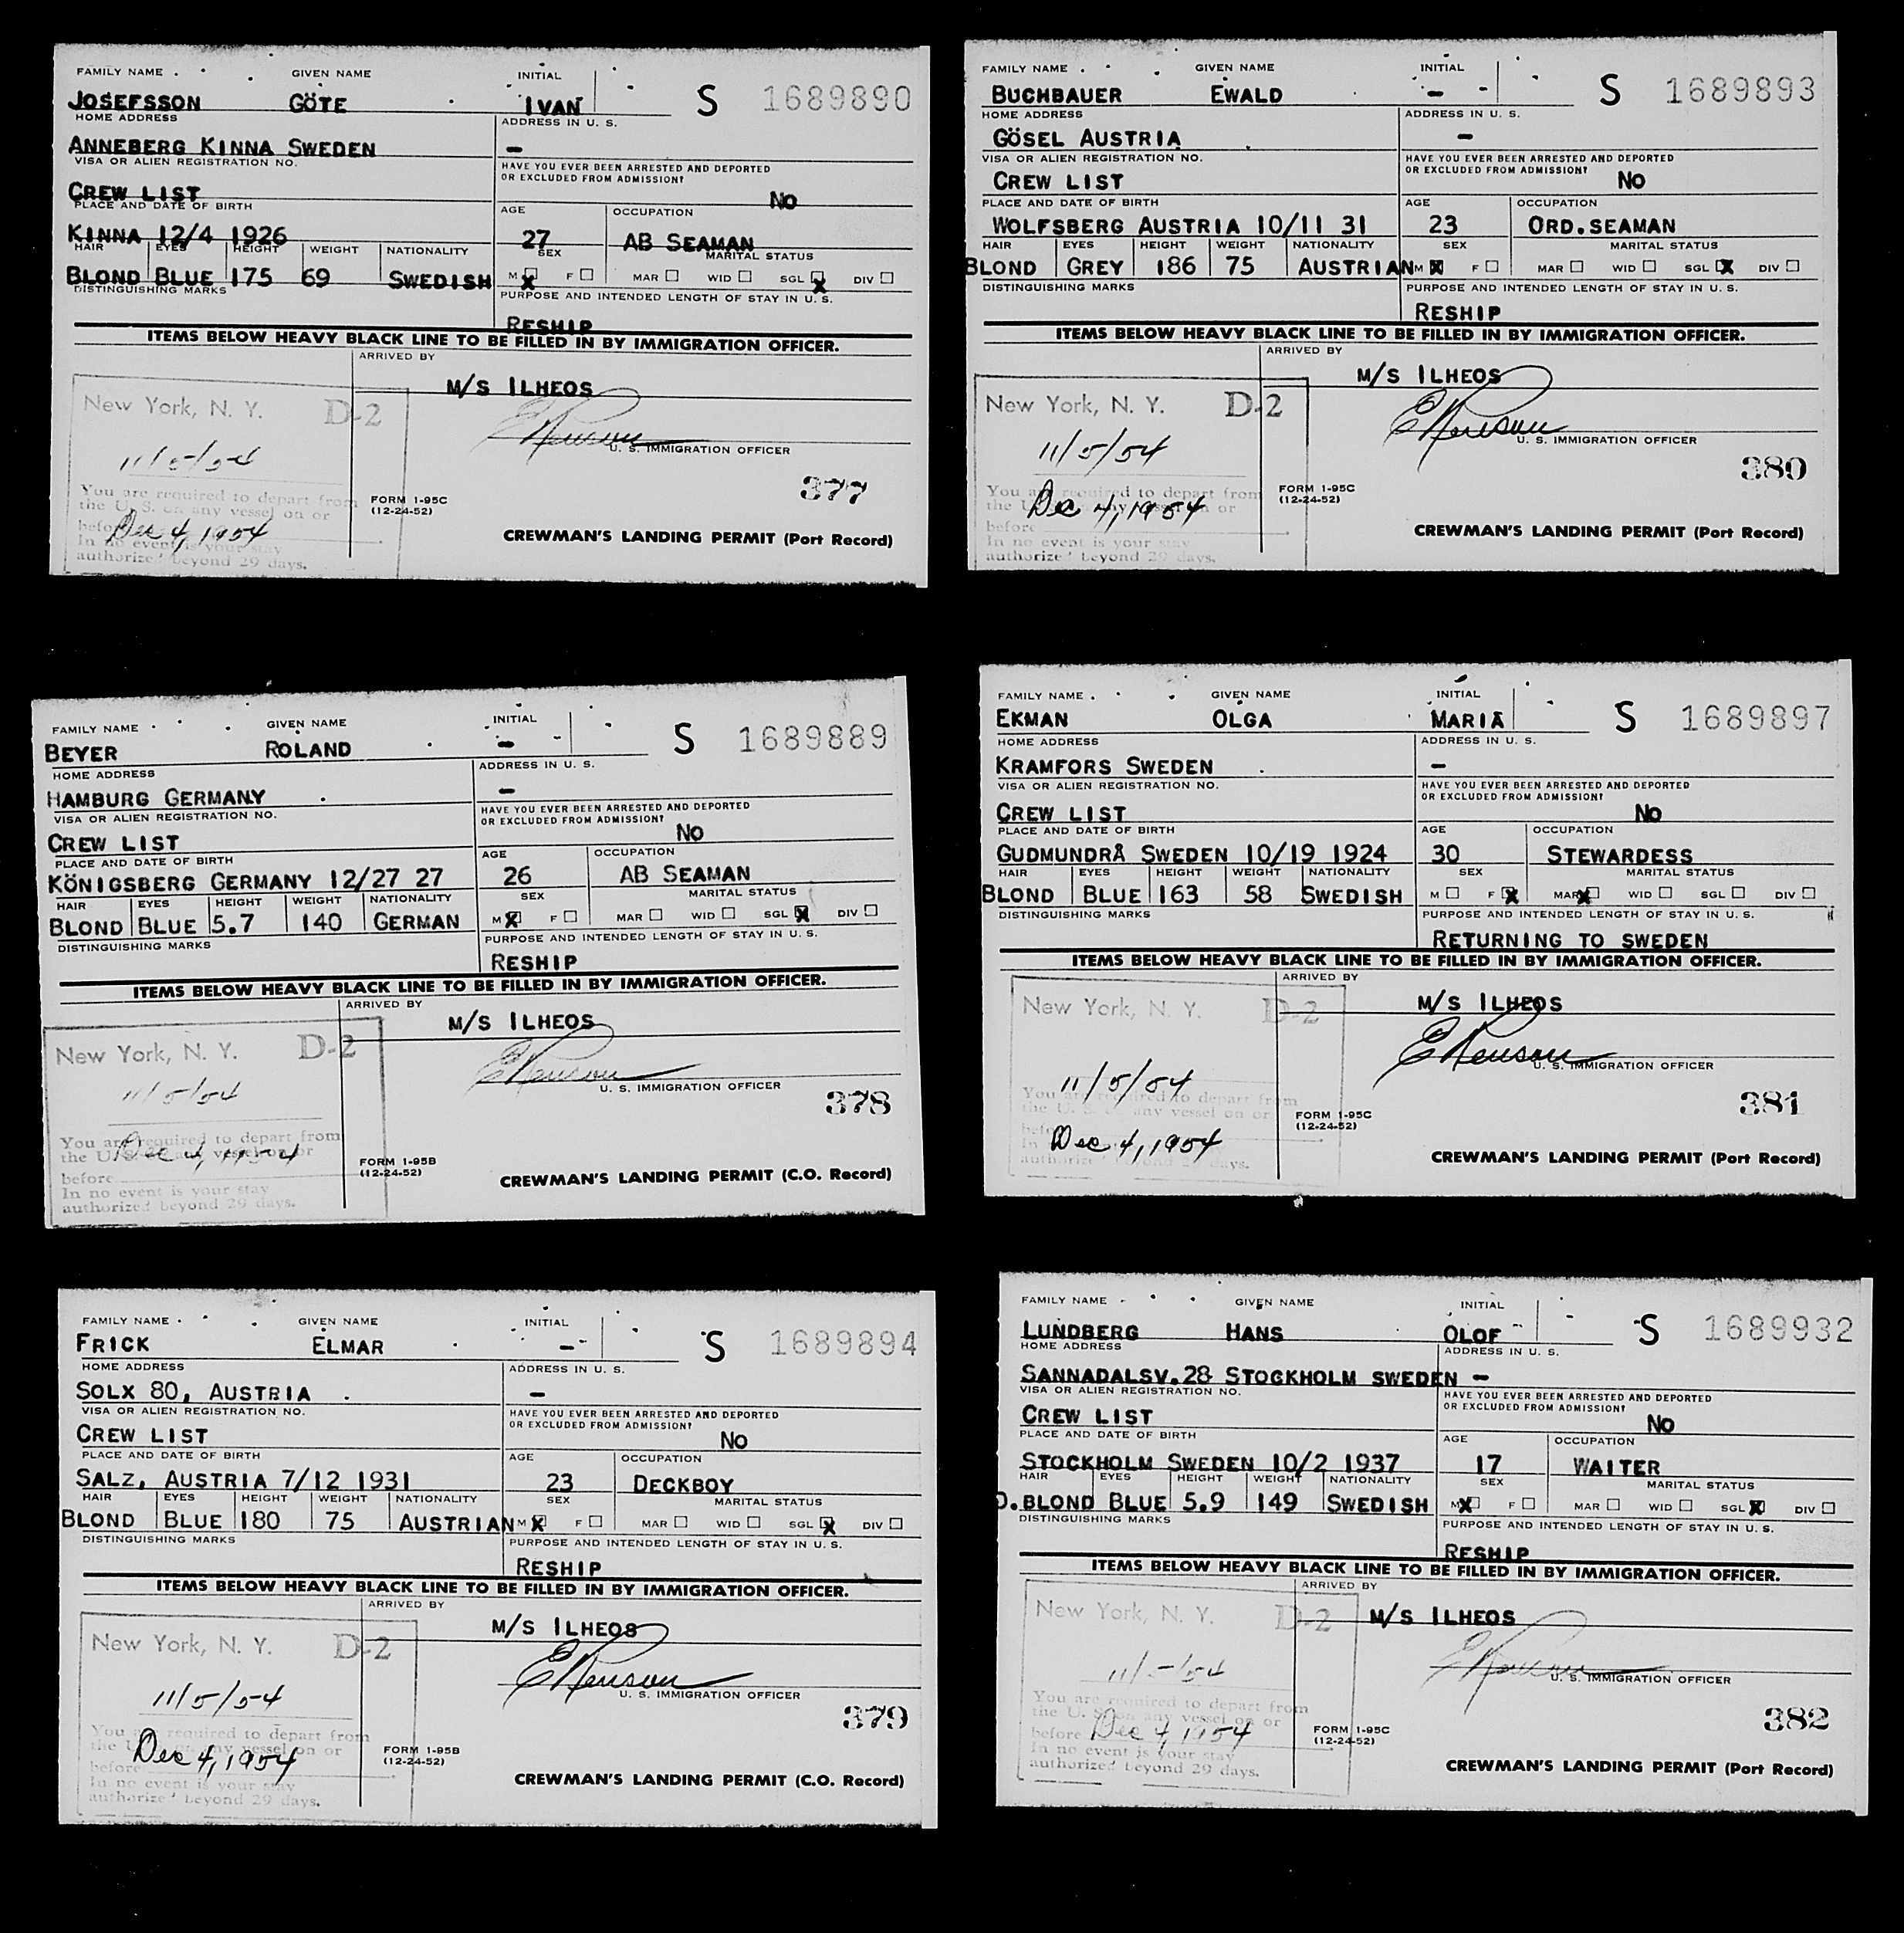 FAMILY NAME GIVEN NAME INITIAL
JOSEFSSON GÖTE IVAN S 1689890
HOME ADDRESS ADDRESS IN U. S.
ANNEBERG KINNA SWEDEN –
VISA OR ALIEN REGISTRATION NO. HAVE YOU EVER BEEN ARRESTED AND DEPORTED
OR EXCLUDED FROM ADMISSION?
CREW LIST No
PLACE AND DATE OF BIRTH AGE OCCUPATION
KINNA 12/4 1926 27 AB SEAMAN
HAIR EYES HEIGHT WEIGHT NATIONALITY SEX MARITAL STATUS
BLOND BLUE 175 69 SWEDISH M X F MAR WID SGL X DIV
DISTINGUISHING MARKS PURPOSE AND INTENDED LENGTH OF STAY IN U. S.
RESHIP
ITEMS BELOW HEAVY BLACK LINE TO BE FILLED IN BY IMMIGRATION OFFICER.
ARRIVED BY
M/S ILHEOS
New York, N. Y. D-2
U. S. IMMIGRATION OFFICER
11/5/54
377
You are required to depart from
the U. S. on any vessel on or
before Dec 4, 1954
In no event is your stay
authorized beyond 29 days.
FORM 1-95C
(12-24-52)
CREWMAN'S LANDING PERMIT (Port Record)
FAMILY NAME GIVEN NAME INITIAL
BUCHBAUER EWALD – S 1689893
HOME ADDRESS ADDRESS IN U. S.
GÖSEL AUSTRIA –
VISA OR ALIEN REGISTRATION NO. HAVE YOU EVER BEEN ARRESTED AND DEPORTED
OR EXCLUDED FROM ADMISSION?
CREW LIST No
PLACE AND DATE OF BIRTH AGE OCCUPATION
WOLFSBERG AUSTRIA 10/11 31 23 ORD.SEAMAN
HAIR EYES HEIGHT WEIGHT NATIONALITY SEX MARITAL STATUS
BLOND GREY 186 75 AUSTRIAN M X F MAR WID SGL X DIV
DISTINGUISHING MARKS PURPOSE AND INTENDED LENGTH OF STAY IN U. S.
RESHIP
ITEMS BELOW HEAVY BLACK LINE TO BE FILLED IN BY IMMIGRATION OFFICER.
ARRIVED BY
M/S ILHEOS
New York, N. Y. D-2
U. S. IMMIGRATION OFFICER
11/5/54
380
You are required to depart from
the U. S. on any vessel on or
before Dec 4, 1954
In no event is your stay
authorized beyond 29 days.
FORM 1-95C
(12-24-52)
CREWMAN'S LANDING PERMIT (Port Record)
FAMILY NAME GIVEN NAME INITIAL
BEYER ROLAND – S 1689889
HOME ADDRESS ADDRESS IN U. S.
HAMBURG GERMANY –
VISA OR ALIEN REGISTRATION NO. HAVE YOU EVER BEEN ARRESTED AND DEPORTED
OR EXCLUDED FROM ADMISSION?
CREW LIST No
PLACE AND DATE OF BIRTH AGE OCCUPATION
KÖNIGSBERG GERMANY 12/27 27 26 AB SEAMAN
HAIR EYES HEIGHT WEIGHT NATIONALITY SEX MARITAL STATUS
BLOND BLUE 5.7 140 GERMAN M X F MAR WID SGL X DIV
DISTINGUISHING MARKS PURPOSE AND INTENDED LENGTH OF STAY IN U. S.
RESHIP
ITEMS BELOW HEAVY BLACK LINE TO BE FILLED IN BY IMMIGRATION OFFICER.
ARRIVED BY
M/S ILHEOS
New York, N. Y. D-2
U. S. IMMIGRATION OFFICER
11/5/54
378
You are required to depart from
the U. S. on any vessel on or
Dec 4, 1954
before
In no event is your stay
authorized beyond 29 days.
FORM 1-95B
(12-24-52)
CREWMAN'S LANDING PERMIT (C.O. Record)
FAMILY NAME GIVEN NAME INITIAL
EKMAN OLGA MARIA S 1689897
HOME ADDRESS ADDRESS IN U. S.
KRAMFORS SWEDEN –
VISA OR ALIEN REGISTRATION NO. HAVE YOU EVER BEEN ARRESTED AND DEPORTED
OR EXCLUDED FROM ADMISSION?
CREW LIST No
PLACE AND DATE OF BIRTH AGE OCCUPATION
GUDMUNDRÅ SWEDEN 10/19 1924 30 STEWARDESS
HAIR EYES HEIGHT WEIGHT NATIONALITY SEX MARITAL STATUS
BLOND BLUE 163 58 SWEDISH M F X MAR X WID SGL DIV
DISTINGUISHING MARKS PURPOSE AND INTENDED LENGTH OF STAY IN U. S.
RETURNING TO SWEDEN
ITEMS BELOW HEAVY BLACK LINE TO BE FILLED IN BY IMMIGRATION OFFICER.
ARRIVED BY
M/S ILHEOS
New York, N. Y. D-2
U. S. IMMIGRATION OFFICER
11/5/54
381
You are required to depart from
the U. S. on any vessel on or
before Dec 4, 1954
In
authorized beyond 29 days.
FORM 1-95C
(12-24-52)
CREWMAN'S LANDING PERMIT (Port Record)
FAMILY NAME GIVEN NAME INITIAL
FRICK ELMAR – S 1689894
HOME ADDRESS ADDRESS IN U. S.
SOLX 80, AUSTRIA –
VISA OR ALIEN REGISTRATION NO. HAVE YOU EVER BEEN ARRESTED AND DEPORTED
OR EXCLUDED FROM ADMISSION?
CREW LIST No
PLACE AND DATE OF BIRTH AGE OCCUPATION
SALZ, AUSTRIA 7/12 1931 23 DECKBOY
HAIR EYES HEIGHT WEIGHT NATIONALITY SEX MARITAL STATUS
BLOND BLUE 180 75 AUSTRIAN M X F MAR WID SGL X DIV
DISTINGUISHING MARKS PURPOSE AND INTENDED LENGTH OF STAY IN U. S.
RESHIP
ITEMS BELOW HEAVY BLACK LINE TO BE FILLED IN BY IMMIGRATION OFFICER.
ARRIVED BY
M/S ILHEOS
New York, N. Y. D-2
U. S. IMMIGRATION OFFICER
11/5/54
379
You are required to depart from
the U. S. on any vessel on or
Dec 4, 1954
before
In no event is your stay
authorized beyond 29 days.
FORM 1-95B
(12-24-52)
CREWMAN'S LANDING PERMIT (C.O. Record)
FAMILY NAME GIVEN NAME INITIAL
LUNDBERG HANS OLOF S 1689932
HOME ADDRESS ADDRESS IN U. S.
SANNADALSV.28 STOCKHOLM SWEDEN –
VISA OR ALIEN REGISTRATION NO. HAVE YOU EVER BEEN ARRESTED AND DEPORTED
OR EXCLUDED FROM ADMISSION?
CREW LIST No
PLACE AND DATE OF BIRTH AGE OCCUPATION
STOCKHOLM SWEDEN 10/2 1937 17 WAITER
HAIR EYES HEIGHT WEIGHT NATIONALITY SEX MARITAL STATUS
D.BLOND BLUE 5.9 149 SWEDISH M X F MAR WID SGL X DIV
DISTINGUISHING MARKS PURPOSE AND INTENDED LENGTH OF STAY IN U. S.
RESHIP
ITEMS BELOW HEAVY BLACK LINE TO BE FILLED IN BY IMMIGRATION OFFICER.
ARRIVED BY
M/S ILHEOS
New York, N. Y. D-2
U. S. IMMIGRATION OFFICER
11/5/54
382
You are required to depart from
the U. S. on any vessel on or
before Dec 4, 1954
In no event is your stay
authorized beyond 29 days.
FORM 1-95C
(12-24-52)
CREWMAN'S LANDING PERMIT (Port Record)